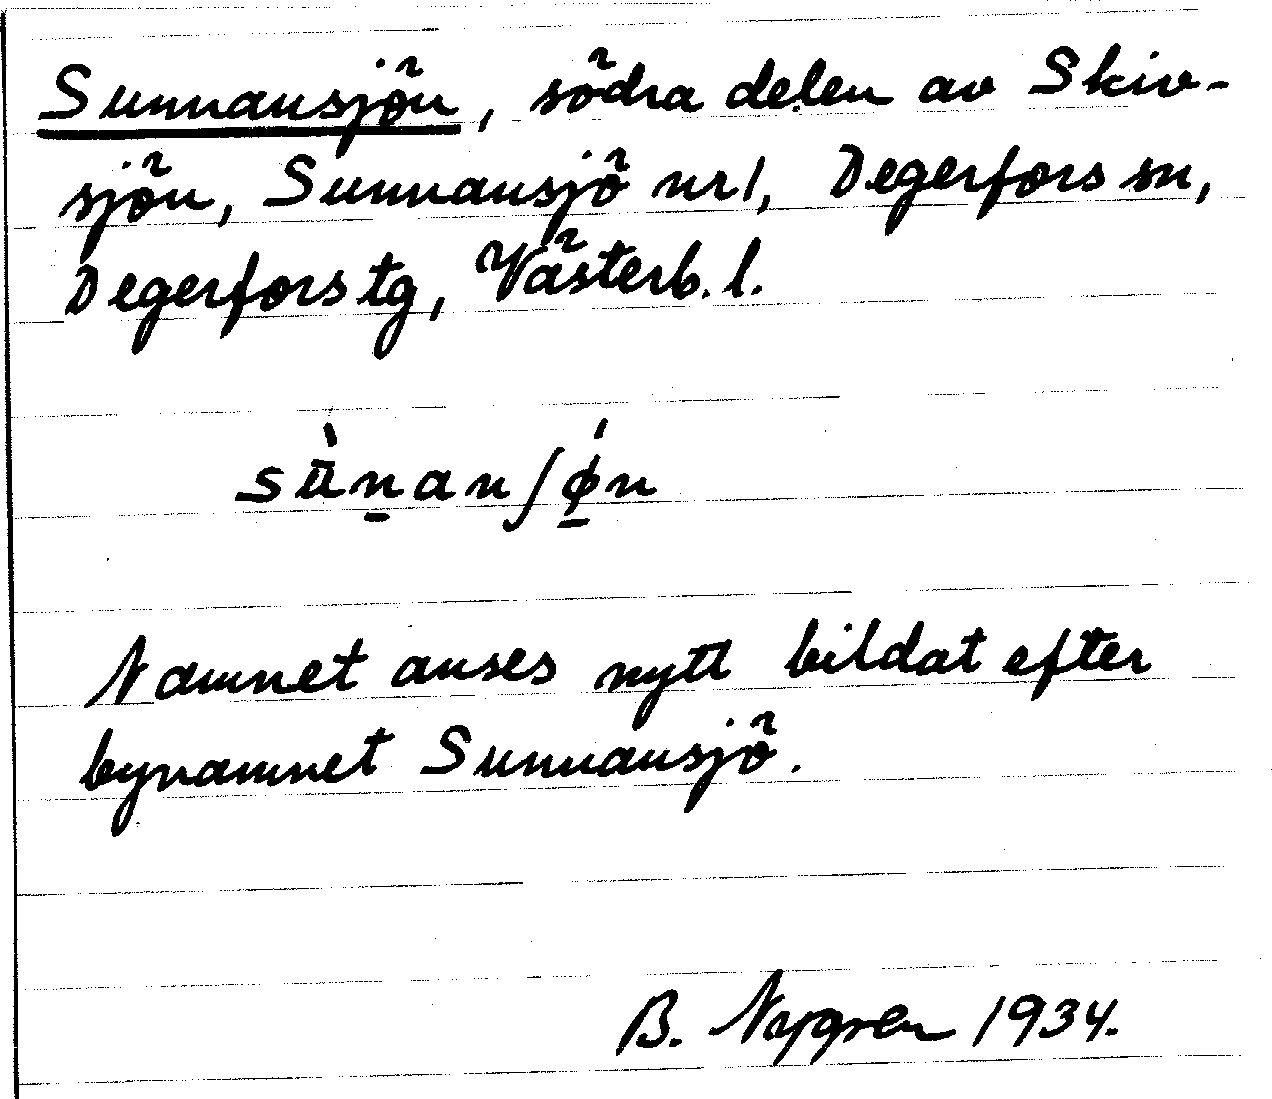 Sunnansjön, södra delen av Skiv-
sjön, Sunnansjö nr 1, Degerfors sn,
Degerfors tg, Västerb. l.
sǜn̠anʃǿ̠n
Namnet anses nytt bildat efter
bynamnet Sunnansjö.
B. Nygren 1934.